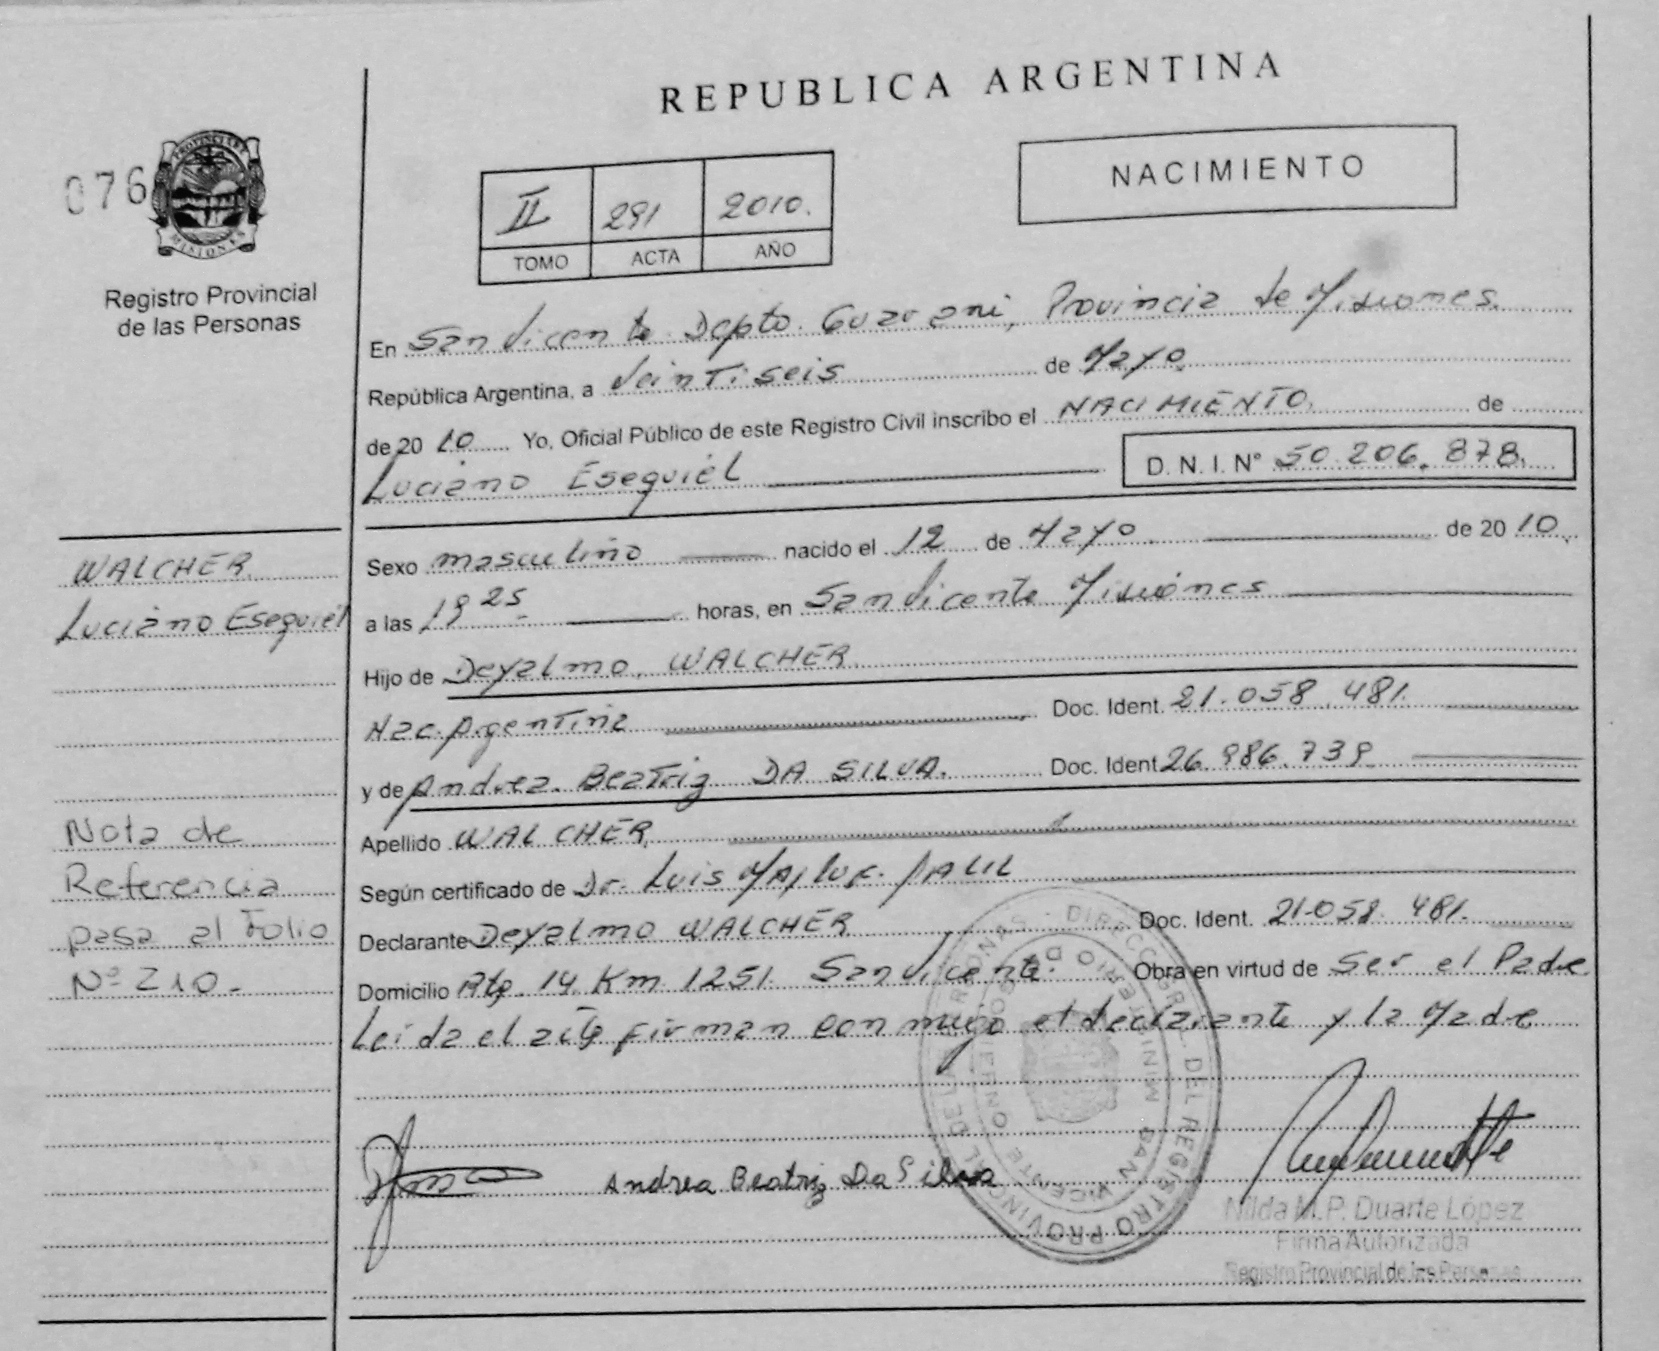 REPUBLICA ARGENTINA
076
PROVINCIA DE
MISIONES
Registro Provincial
de las Personas
II 291 2010.
TOMO ACTA AÑO
NACIMIENTO
En San Vicente Depto. Guarani, Provincia de Misiones.
República Argentina, a Veintiseis de Mayo
de 20 10 Yo, Oficial Público de este Registro Civil inscribo el NACIMIENTO de
Luciano Esequiel D. N. I. Nº 50.206.878.
WALCHER
Luciano Esequiel
Sexo masculino nacido el 12 de Mayo de 20 10.
a las 19 25 horas, en San Vicente Misiones
Hijo de Deyalmo. WALCHER
Nac. Argentina Doc. Ident. 21.058.481.
y de Andrea. Beatriz DA SILVA. Doc. Ident 26.986.739
Apellido WALCHER
Según certificado de Dr. Luis JALIL
Declarante Deyalmo WALCHER Doc. Ident. 21.058.481.
Domicilio Rta. 14 Km 1251. San Vicente. Obra en virtud de Ser el Padre
Leida el acta firman conmigo el declarante y la Madre
Nota de
Referencia
pasa al Folio
Nº 210.-
Andrea Beatriz Da Silva
DIRECC. GRL. DEL REGISTRO PROVINCIAL DE LAS PERSONAS
MINISTERIO DE GOBIERNO
SAN VICENTE
Nilda M.P. Duarte López
Firma Autorizada
Registro Provincial de las Personas